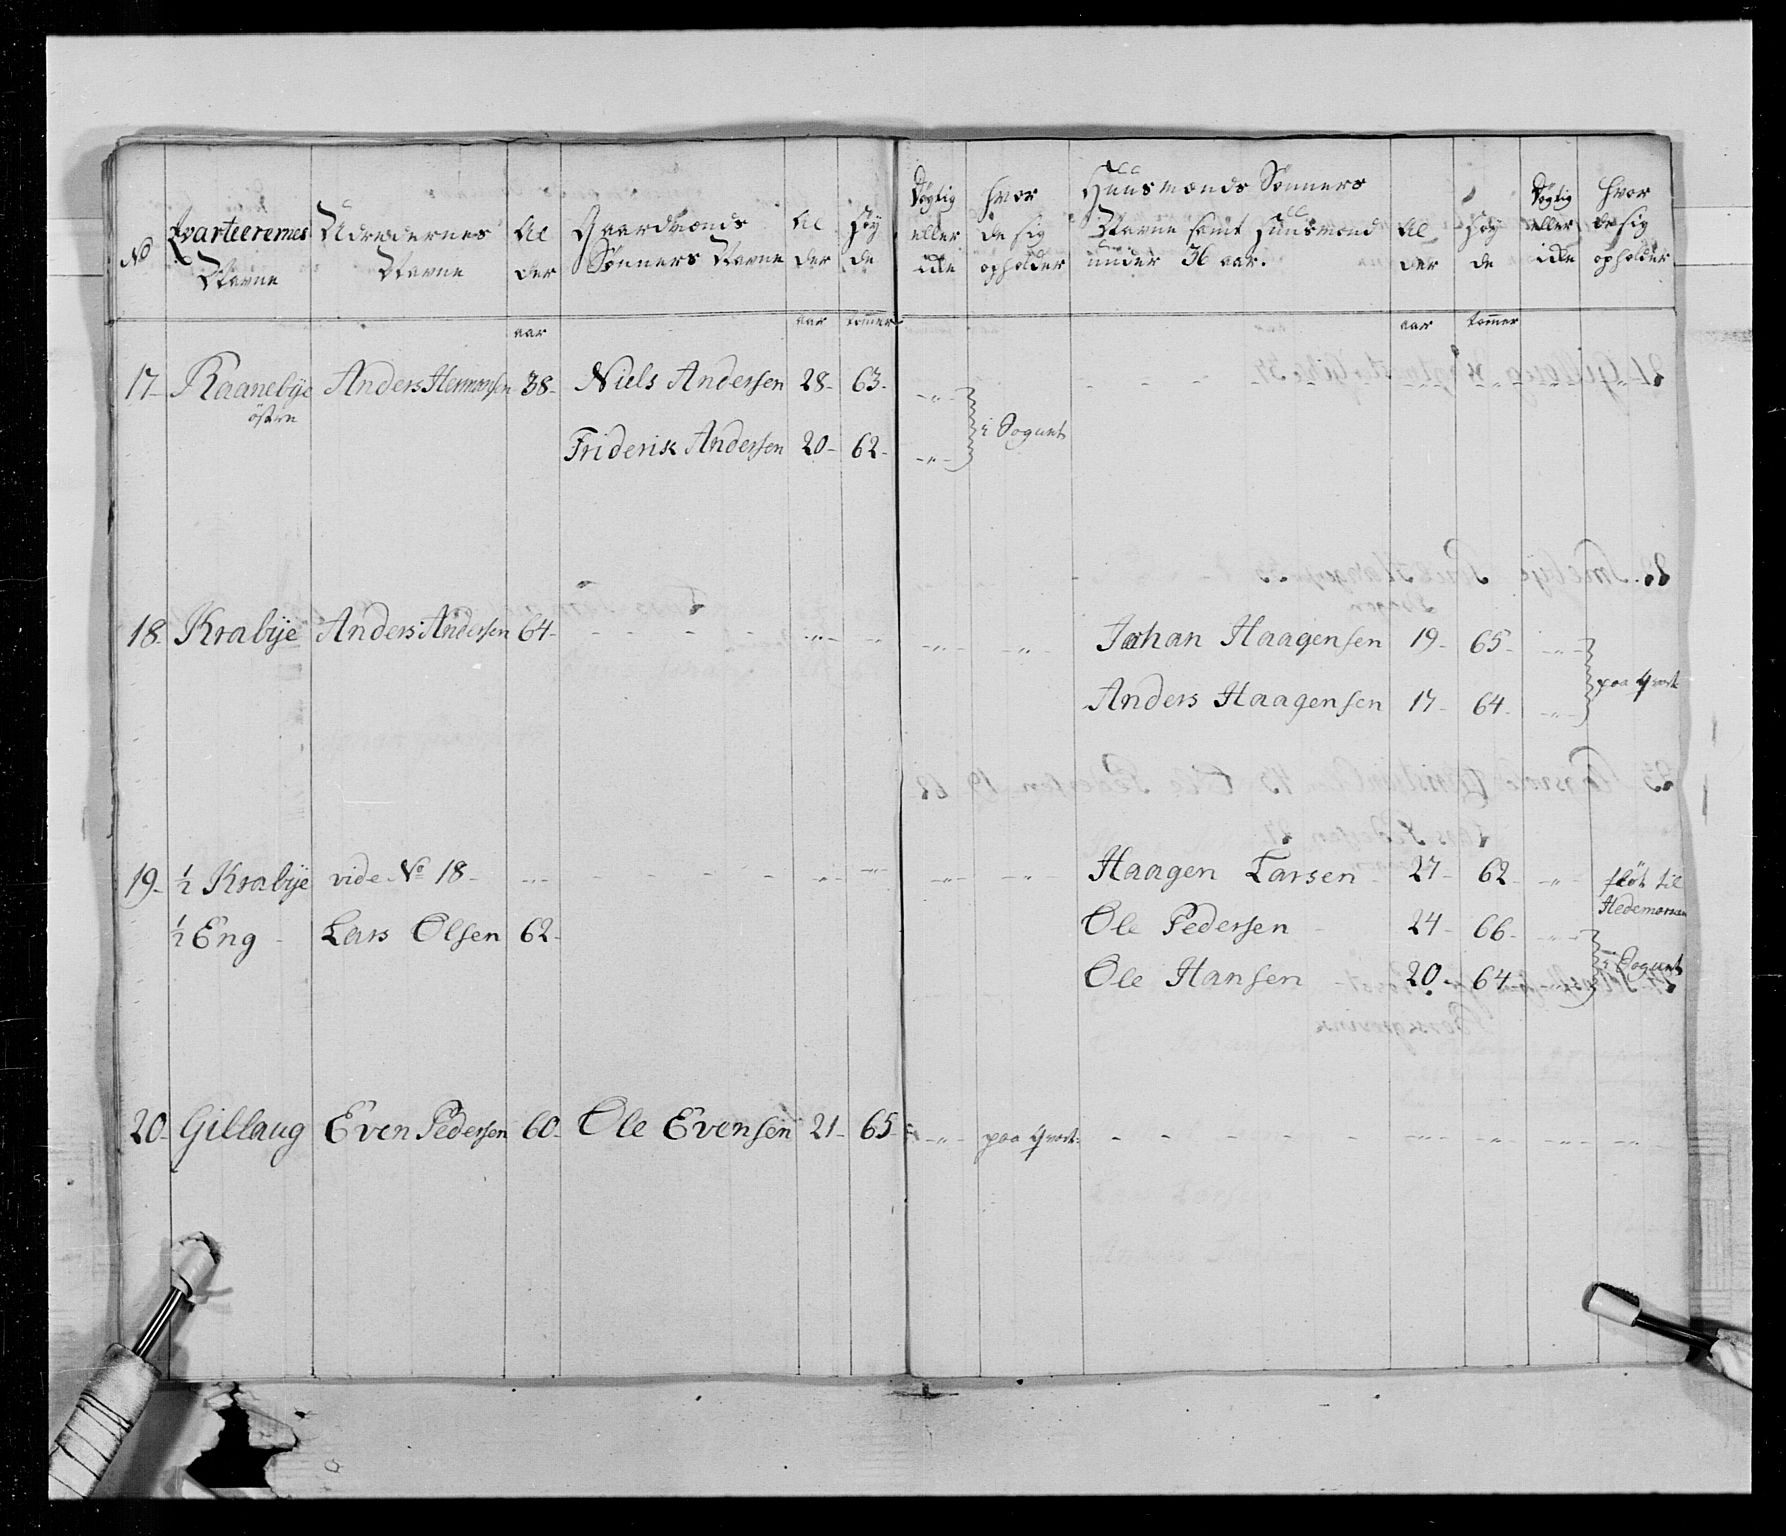 No
Qvarteerernes Navne
Opsiddernes Navne
Alder
Gaardmænds Sønners Navne
Alder
Høyde
Dögtig eller icke
hvor de sig opholder
Huusmænds Sønners Navne samt Huusmænd under 36 aar.
Alder
Høyde
Dögtig eller icke
hvor de sig opholder
aar aar tommer aar tommer
17- Raanebye Anders Hermansen 38- Niels Andersen 28- 63- -"-
östre
Friderik Andersen 20- 62- -"- i Sognet
18- Krabye Anders Andersen 64- - - - - -"- -"- -"- -"- Johan Haagensen 19- 65- -"-
Anders Haagensen 17- 64- -"- paa Qvart
19- ½ Krabye vide No 18- -"- - - - - -"- -"- -"- -"- Haagen Larsen 27- 62- -"- fløt til Hedemarken
½ Eng - Lars Olsen 62- Ole Pedersen - 24- 66- -"-
Ole Hansen 20- 64- -"- i Sognet
20- Gillaug Even Pedersen 60- Ole Evensen 21- 65- -"- paa Qvart: - - - - - -"- -"- -"- -"-